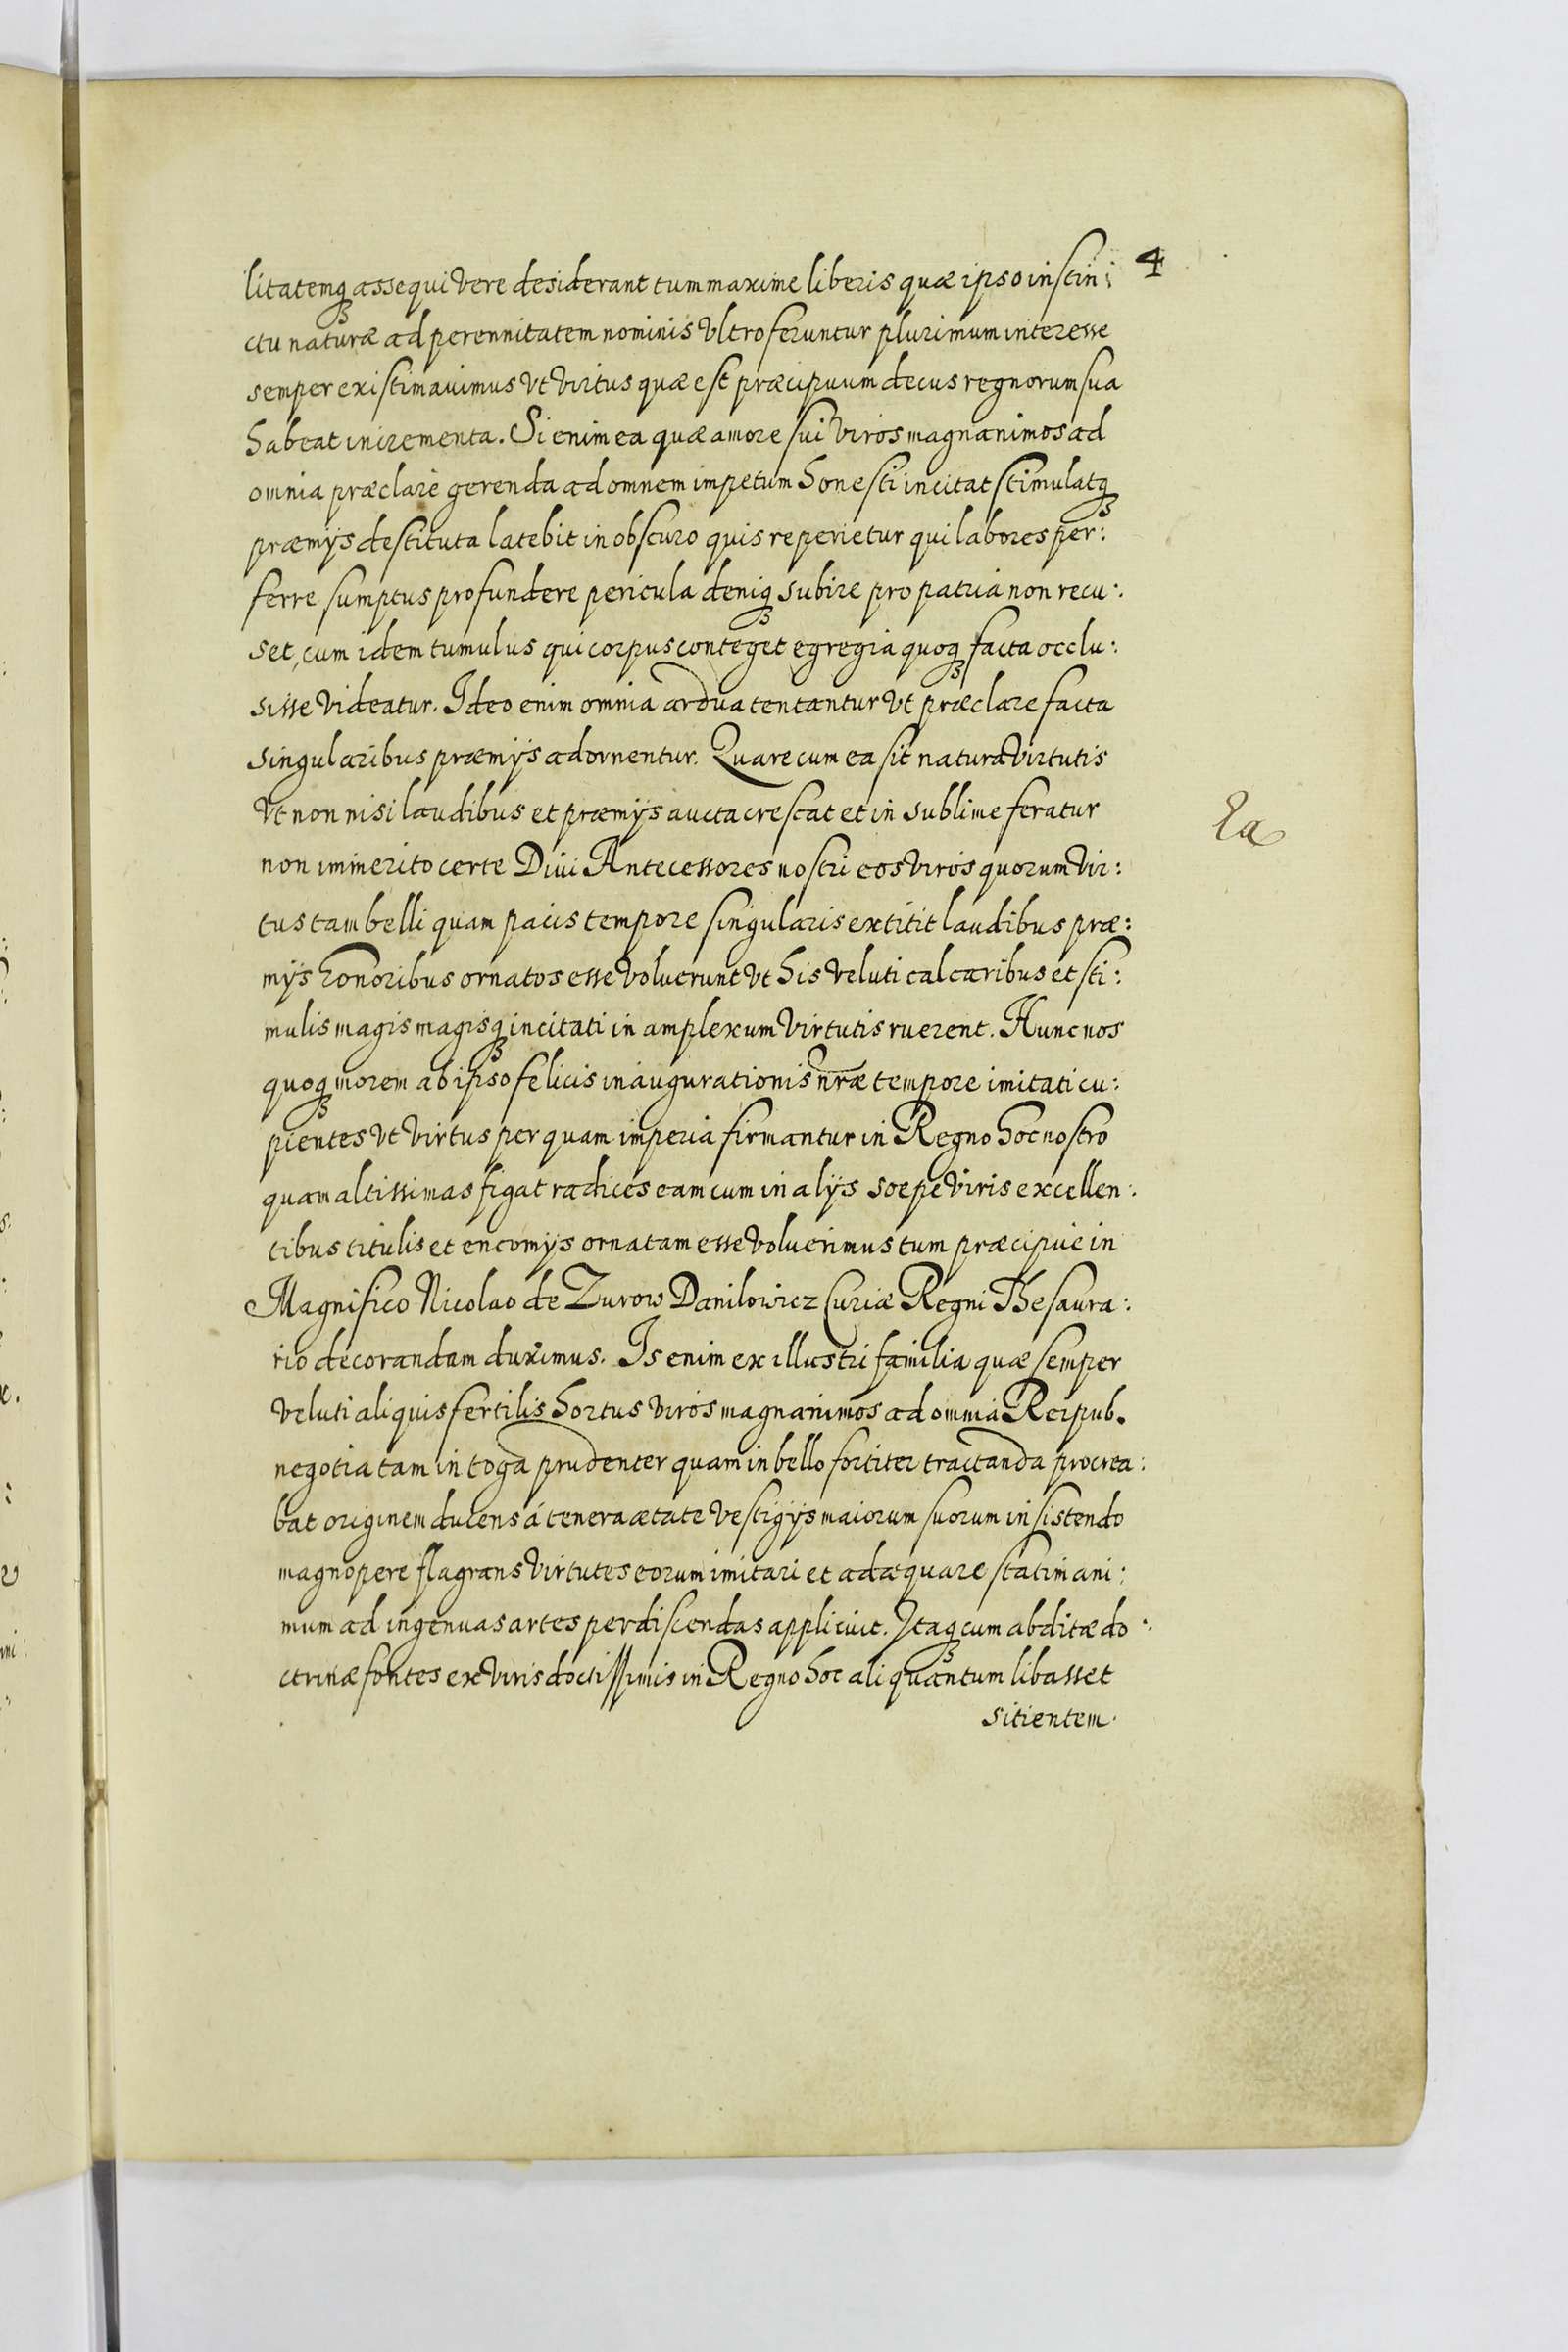 4
litatemq₃ assequi vere desiderant tum maxime liberis quæ ipso instin:
ctu naturæ ad perennitatem nominis vltro feruntur plurimum interesse
semper existimauimus vt virtus quæ est præcipuum decus regnorum sua
habeat incrementa. Si enim ea quæ amore sui viros magnanimos ad
omnia præclarè gerenda ad omnem impetum honesti incitat stimulatq₃
præmijs destituta latebit in obscuro quis reperietur qui labores per:
ferre sumptus profundere pericula deniq₃ subire pro patria non recu:
set, cum idem tumulus qui corpus conteget egregia quoq₃ facta occlu:
sisse videatur. Ideo enim omnia ardua tentantur vt præclare facta
singularibus præmijs adornentur. Quare cum ea sit natura virtutis
vt non nisi laudibus et præmijs aucta crescat et in sublime feratur
Ea
non immerito certe Diui Antecessores nostri eos viros quorum vir:
tus tam belli quam pacis tempore singularis extitit laudibus præ:
mijs honoribus ornatos esse voluerunt vt his veluti calcaribus et sti:
mulis magis magisq₃ incitati in amplexum virtutis ruerent. Hunc nos
quoq₃ morem ab ipso felicis inaugurationis nræ tempore imitati cu:
pientes vt virtus per quam imperia firmantur in Regno hoc nostro
quam altissimas figat radices eam cum in alijs soepe viris excellen:
tibus titulis et encomijs ornatam esse voluerimus tum præcipue in
Magnifico Nicolao de Zurow Danilowicz Curiæ Regni Thesaura:
rio decorandam duximus. Is enim ex illustri familia quæ semper
veluti aliquis fertilis hortus viros magnanimos ad omnia Reipub.
negotia tam in toga prudenter quam in bello fortiter tractanda procrea:
bat originem ducens á tenera ætate vestigijs maiorum suorum insistendo
magnopere flagrans virtutes eorum imitari et adæquare statim ani:
mum ad ingenuas artes perdiscendas applicuit. Itaq₃ cum abditæ do:
ctrinæ fontes ex viris doctissimis in Regno hoc aliquantum libasset
sitientem.